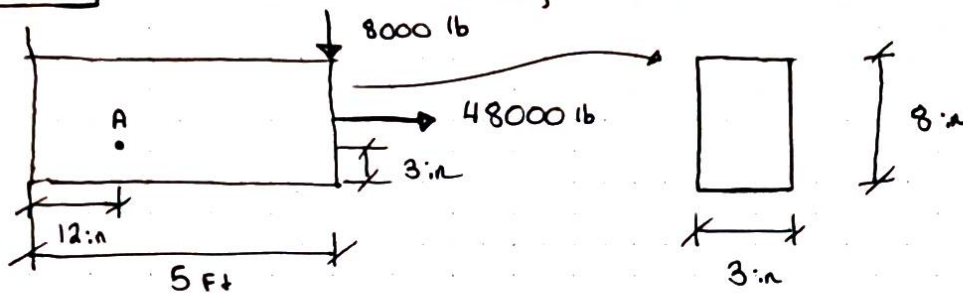 8000 lb
48000 lb
A
8 in
3 in
12 in
5 Ft
3 in